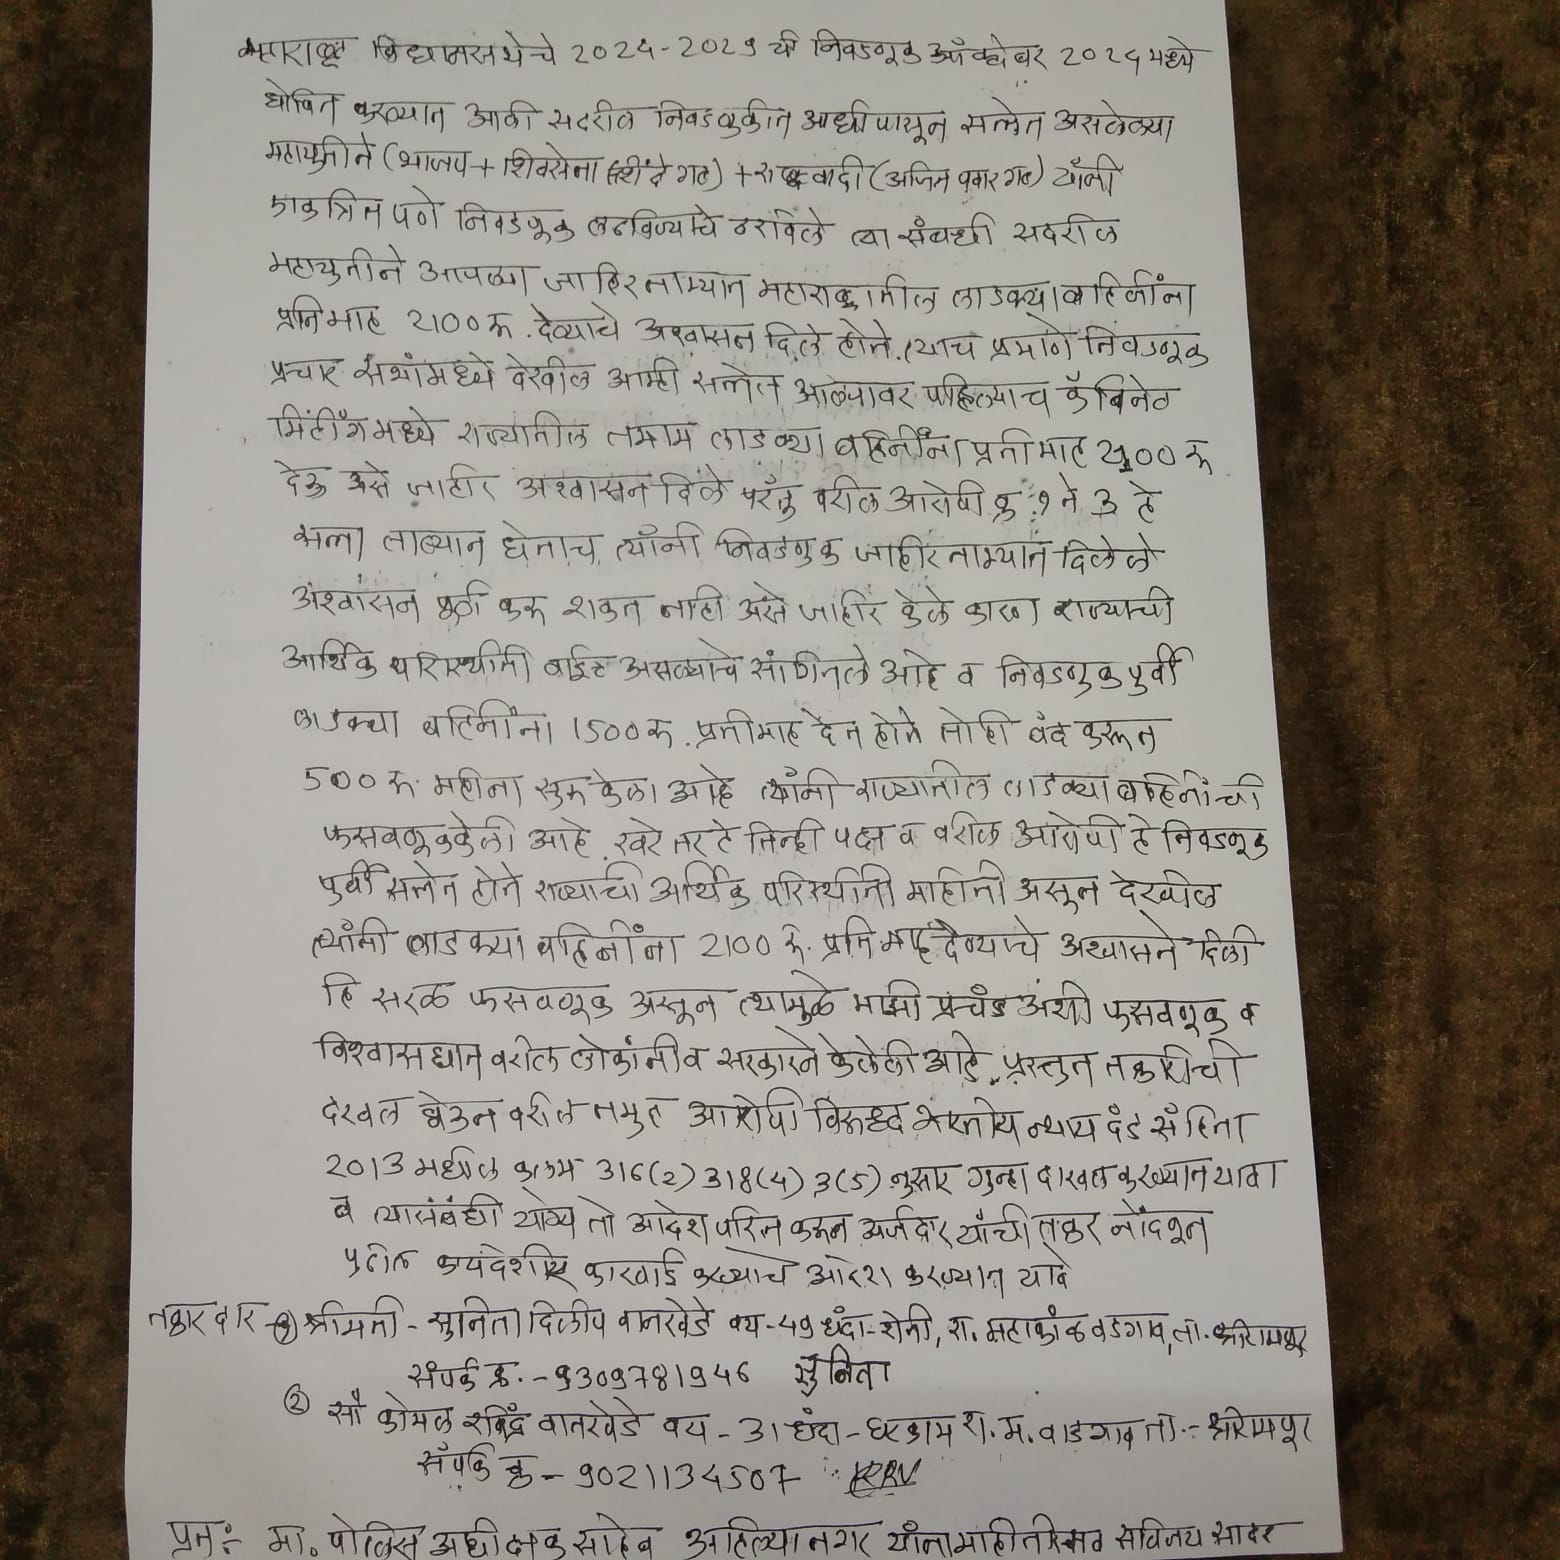 महाराष्ट्र विधानसभेचे 2024-2029 ची निवडणूक ऑक्टोबर 2024 मध्ये
घोषित करण्यात आली सदरील निवडणुकीत आधीपासून सत्तेत असलेल्या
महायुतीने (भाजप + शिवसेना (शिंदे गट) + राष्ट्रवादी (अजित पवार गट) याँनी
एकत्रितपणे निवडणूक लढविण्याचे ठरविले त्या संबधी सदरील
महायुतीने आपल्या जाहिरनाम्यात महाराष्ट्रातील लाडक्या बहिणींना
प्रति माह 2100 रू. देण्याचे अश्वासन दिले होते. त्याच प्रमाणे निवडणूक
प्रचार सभांमध्ये देखील आम्ही सत्तेत आल्यावर पहिल्याच कॅबिनेट
मिटींगमध्ये राज्यातील तमाम लाडक्या बहिनींना प्रती माह 2100 रू
देऊ असे जाहीर अश्वासन दिले परंतु वरील आरोपी क्र. १ ते ३ हे
सत्ता ताब्यात घेताच त्याँनी निवडणुक जाहीरनाम्यात दिलेले
अश्वासन पुर्ण करू शकत नाही असे जाहीर केले कारण राज्याची
आर्थिक परिस्थीती वाईट असल्याचे सांगितले आहे व निवडणुकपुर्वी
लाडक्या बहिनींना 1500 रू. प्रतीमाह देत होते तोही बंद करून
500 रू. महीना सुरू केला आहे त्याँनी राज्यातील लाडक्या बहिनींची
फसवणूक केली आहे. खरे तर हे तिन्ही पक्ष व वरील आरोपी हे निवडणूक
पुर्वी सत्तेत होते राज्याची आर्थिक परिस्थीती माहीती असून देखील
त्याँनी लाडक्या बहिनींना 2100 रू. प्रति माह देण्याचे अश्वासने दिली
हि सरळ फसवणूक असून त्यामुळे माझी प्रचंड अशी फसवणूक व
विश्वासघात वरील लोकांनी व सरकारने केलेली आहे. प्रस्तुत तक्रारीची
दखल घेउन वरील नमुद आरोपी विरूध्द भारतीय न्याय दंड संहिता
2013 मधील कलम 316(2) 318(4) 3(5) नुसार गुन्हा दाखल करण्यात यावा
व त्यासंबंधी योग्य तो आदेश पारित करून अर्जदार याँची तक्रार नोंदवून
पुढील कायदेशीर कारवाई करण्याचे आदेश करण्यात यावे
तक्रारदार - श्रीमती - सुनिता दिलीप वानखेडे वय - 49 धंदा - शेती, रा. महाकाळ वडगाव, ता. श्रीरामपूर
संपर्क क्र. - 9309781946 सुनिता
② सौ कोमल रविंद्र वानखेडे वय - 31 धंदा - घरकाम रा. म. वाडगाव ता. - श्रीरामपूर
संपर्क क्र - 9021134507 KRV
प्रत :- मा. पोलिस अधीक्षक साहेब अहिल्यानगर याँना माहीतीस्तव सविनय सादर